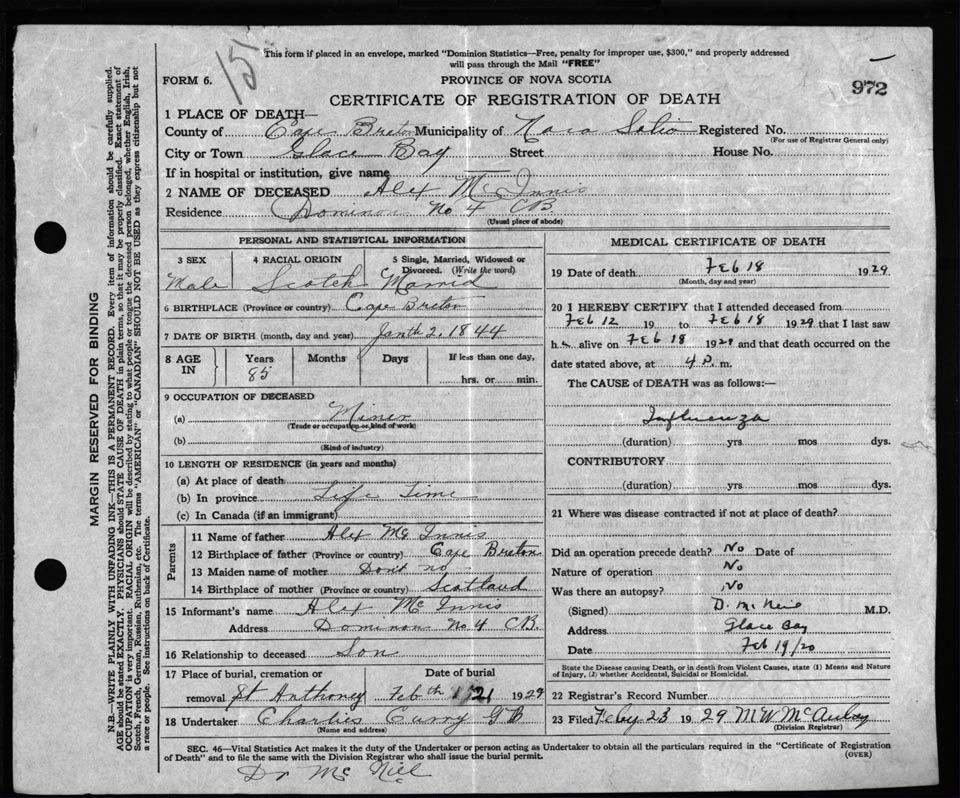 151
This form if placed in an envelope, marked "Dominion Statistics—Free, penalty for improper use, $300," and properly addressed
will pass through the Mail "FREE"
FORM 6. PROVINCE OF NOVA SCOTIA 972
CERTIFICATE OF REGISTRATION OF DEATH
1 PLACE OF DEATH—
County of Cape Breton Municipality of Nova Sotio Registered No.
(For use of Registrar General only)
City or Town Glace Bay Street House No.
If in hospital or institution, give name
2 NAME OF DECEASED Alex McInnis
Residence Dominon No 4 CB
(Usual place of abode)
PERSONAL AND STATISTICAL INFORMATION
3 SEX 4 RACIAL ORIGIN 5 Single, Married, Widowed or
Divorced. (Write the word)
Male Scotch Marrid
6 BIRTHPLACE (Province or country) Cape Breton
7 DATE OF BIRTH (month, day and year) Janth 2, 1844
8 AGE IN Years Months Days If less than one day,
85 hrs. or min.
9 OCCUPATION OF DECEASED
(a) Miner
(Trade or occupation or kind of work)
(b)
(Kind of industry)
10 LENGTH OF RESIDENCE (in years and months)
(a) At place of death
(b) In province Life Time
(c) In Canada (if an immigrant)
Parents
11 Name of father Alex McInnis
12 Birthplace of father (Province or country) Cape Breton
13 Maiden name of mother Dont no
14 Birthplace of mother (Province or country) Scotland
15 Informant's name Alex McInnis
Address Dominon No 4 CB.
16 Relationship to deceased Son
17 Place of burial, cremation or Date of burial
removal St Anthoney Feb th 21 1929
18 Undertaker Charlies Curry GB
(Name and address)
MEDICAL CERTIFICATE OF DEATH
19 Date of death Feb 18 1929
(Month, day and year)
20 I HEREBY CERTIFY that I attended deceased from
Feb 12 19 to Feb 18 1929 that I last saw
h alive on Feb 18 1929 and that death occurred on the
date stated above, at 4 P. m.
The CAUSE of DEATH was as follows:—
Influenza
(duration) yrs mos dys.
CONTRIBUTORY
(duration) yrs mos dys.
21 Where was disease contracted if not at place of death?
Did an operation precede death? No Date of
Nature of operation No
Was there an autopsy? No
(Signed) D. McNeil M.D.
Address Glace Bay
Date Feb 19/20
State the Disease causing Death, or in death from Violent Causes, state (1) Means and Nature
of Injury, (2) whether Accidental, Suicidal or Homicidal.
22 Registrar's Record Number
23 Filed Feby 23 1929 M W McAulay
(Division Registrar)
SEC. 46—Vital Statistics Act makes it the duty of the Undertaker or person acting as Undertaker to obtain all the particulars required in the "Certificate of Registration
of Death" and to file the same with the Division Registrar who shall issue the burial permit. (OVER)
Dr McNiel
MARGIN RESERVED FOR BINDING
N.B.—WRITE PLAINLY WITH UNFADING INK—THIS IS A PERMANENT RECORD. Every item of information should be carefully supplied.
AGE should be stated EXACTLY. PHYSICIANS should STATE CAUSE OF DEATH in plain terms, so that it may be properly classified. Exact statement of
OCCUPATION is very important. RACIAL ORIGIN will be described by stating to what people or tongue the deceased person belonged, whether English, Irish,
Scotch, French, German, Russian, Ruthenian, etc. The terms "AMERICAN" or "CANADIAN" SHOULD NOT BE USED as they express citizenship but not
a race or people. See instructions on back of Certificate.